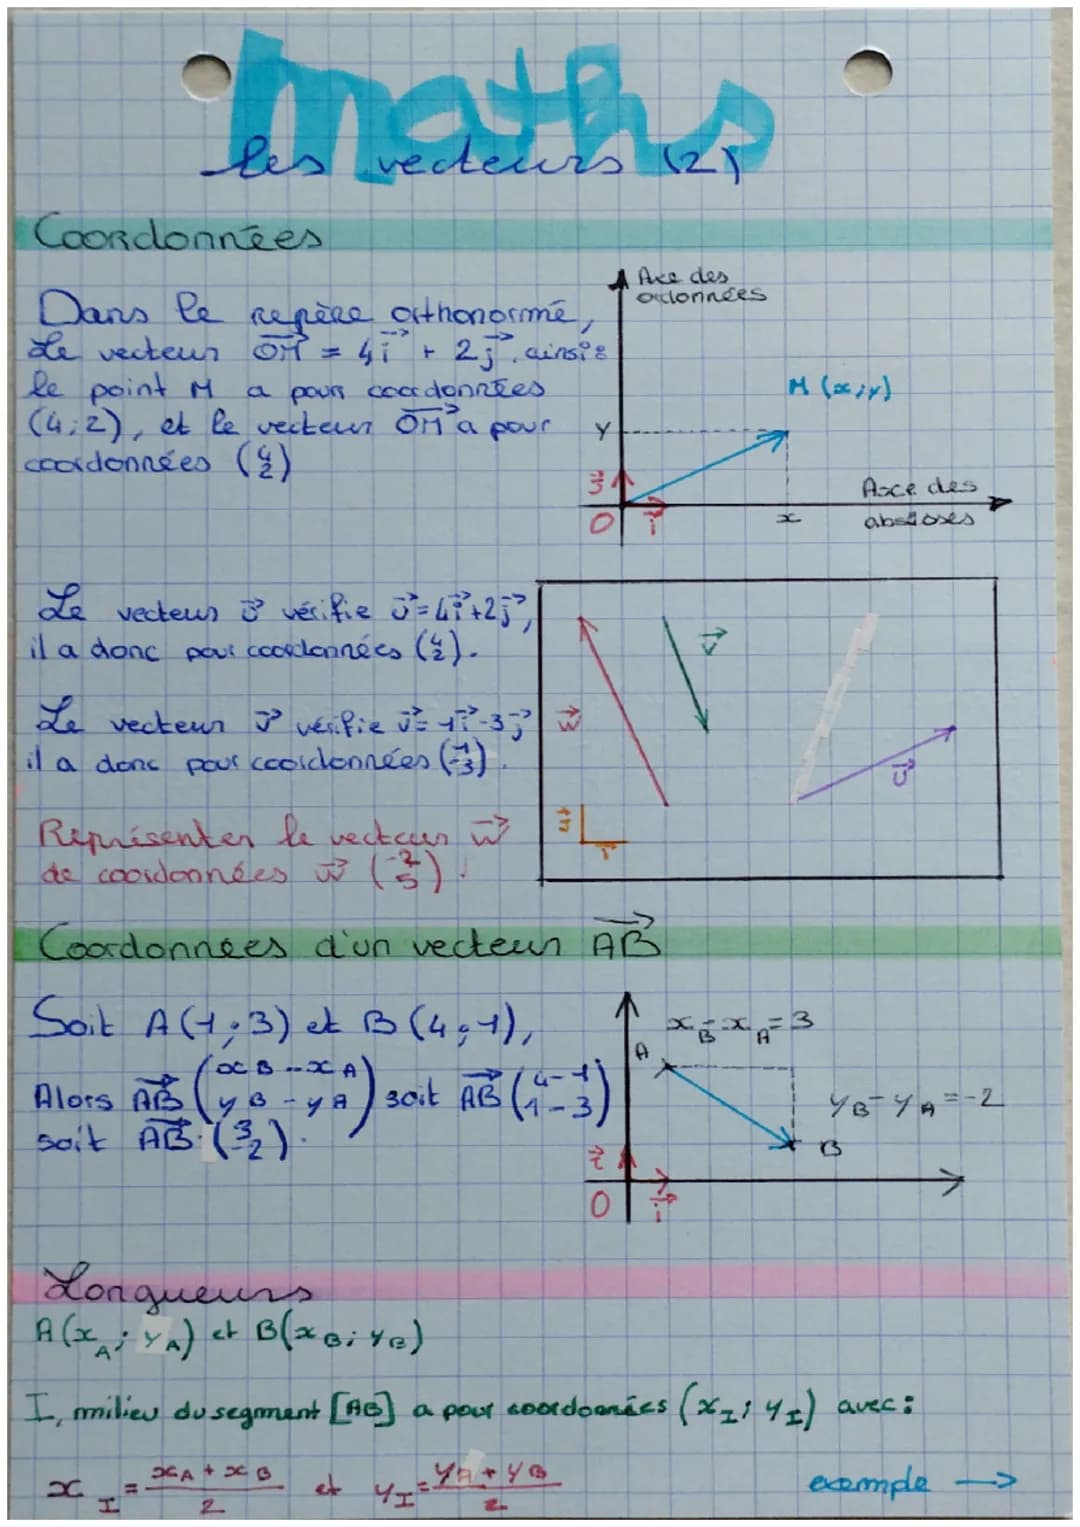 Maths
les vecteurs (2)
Coordonnées
Dans le repère orthonormé,
le vecteur OM⃗ = 4i⃗ + 2j⃗, ainsi :
le point M a pour coordonnées
(4;2), et le vecteur OM⃗ a pour
coordonnées (4 2)
Axe des
ordonnées
M (x;y)
y
j⃗
O
i⃗
x
Axe des
abscisses
Le vecteur u⃗ vérifie u⃗=4i⃗+2j⃗,
il a donc pour coordonnées (4 2).
Le vecteur v⃗ vérifie v⃗= 1i⃗-3j⃗
il a donc pour coordonnées (1 -3).
Représenter le vecteur w⃗
de coordonnées w⃗ (-2 5) !
w⃗
v⃗
u⃗
j⃗
i⃗
Coordonnées d'un vecteur AB⃗
Soit A(1;3) et B(4;1),
Alors AB⃗ (xB - xA yB - yA) soit AB⃗ (4-1 1-3)
soit AB⃗ (3 -2).
xB - xA = 3
A
yB - yA = -2
B
O
i⃗
Longueurs
A(xA; yA) et B(xB; yB)
I, milieu du segment [AB] a pour coordonnées (xI; yI) avec :
xI = (xA + xB)/2 et yI = (yA + yB)/2
exemple →